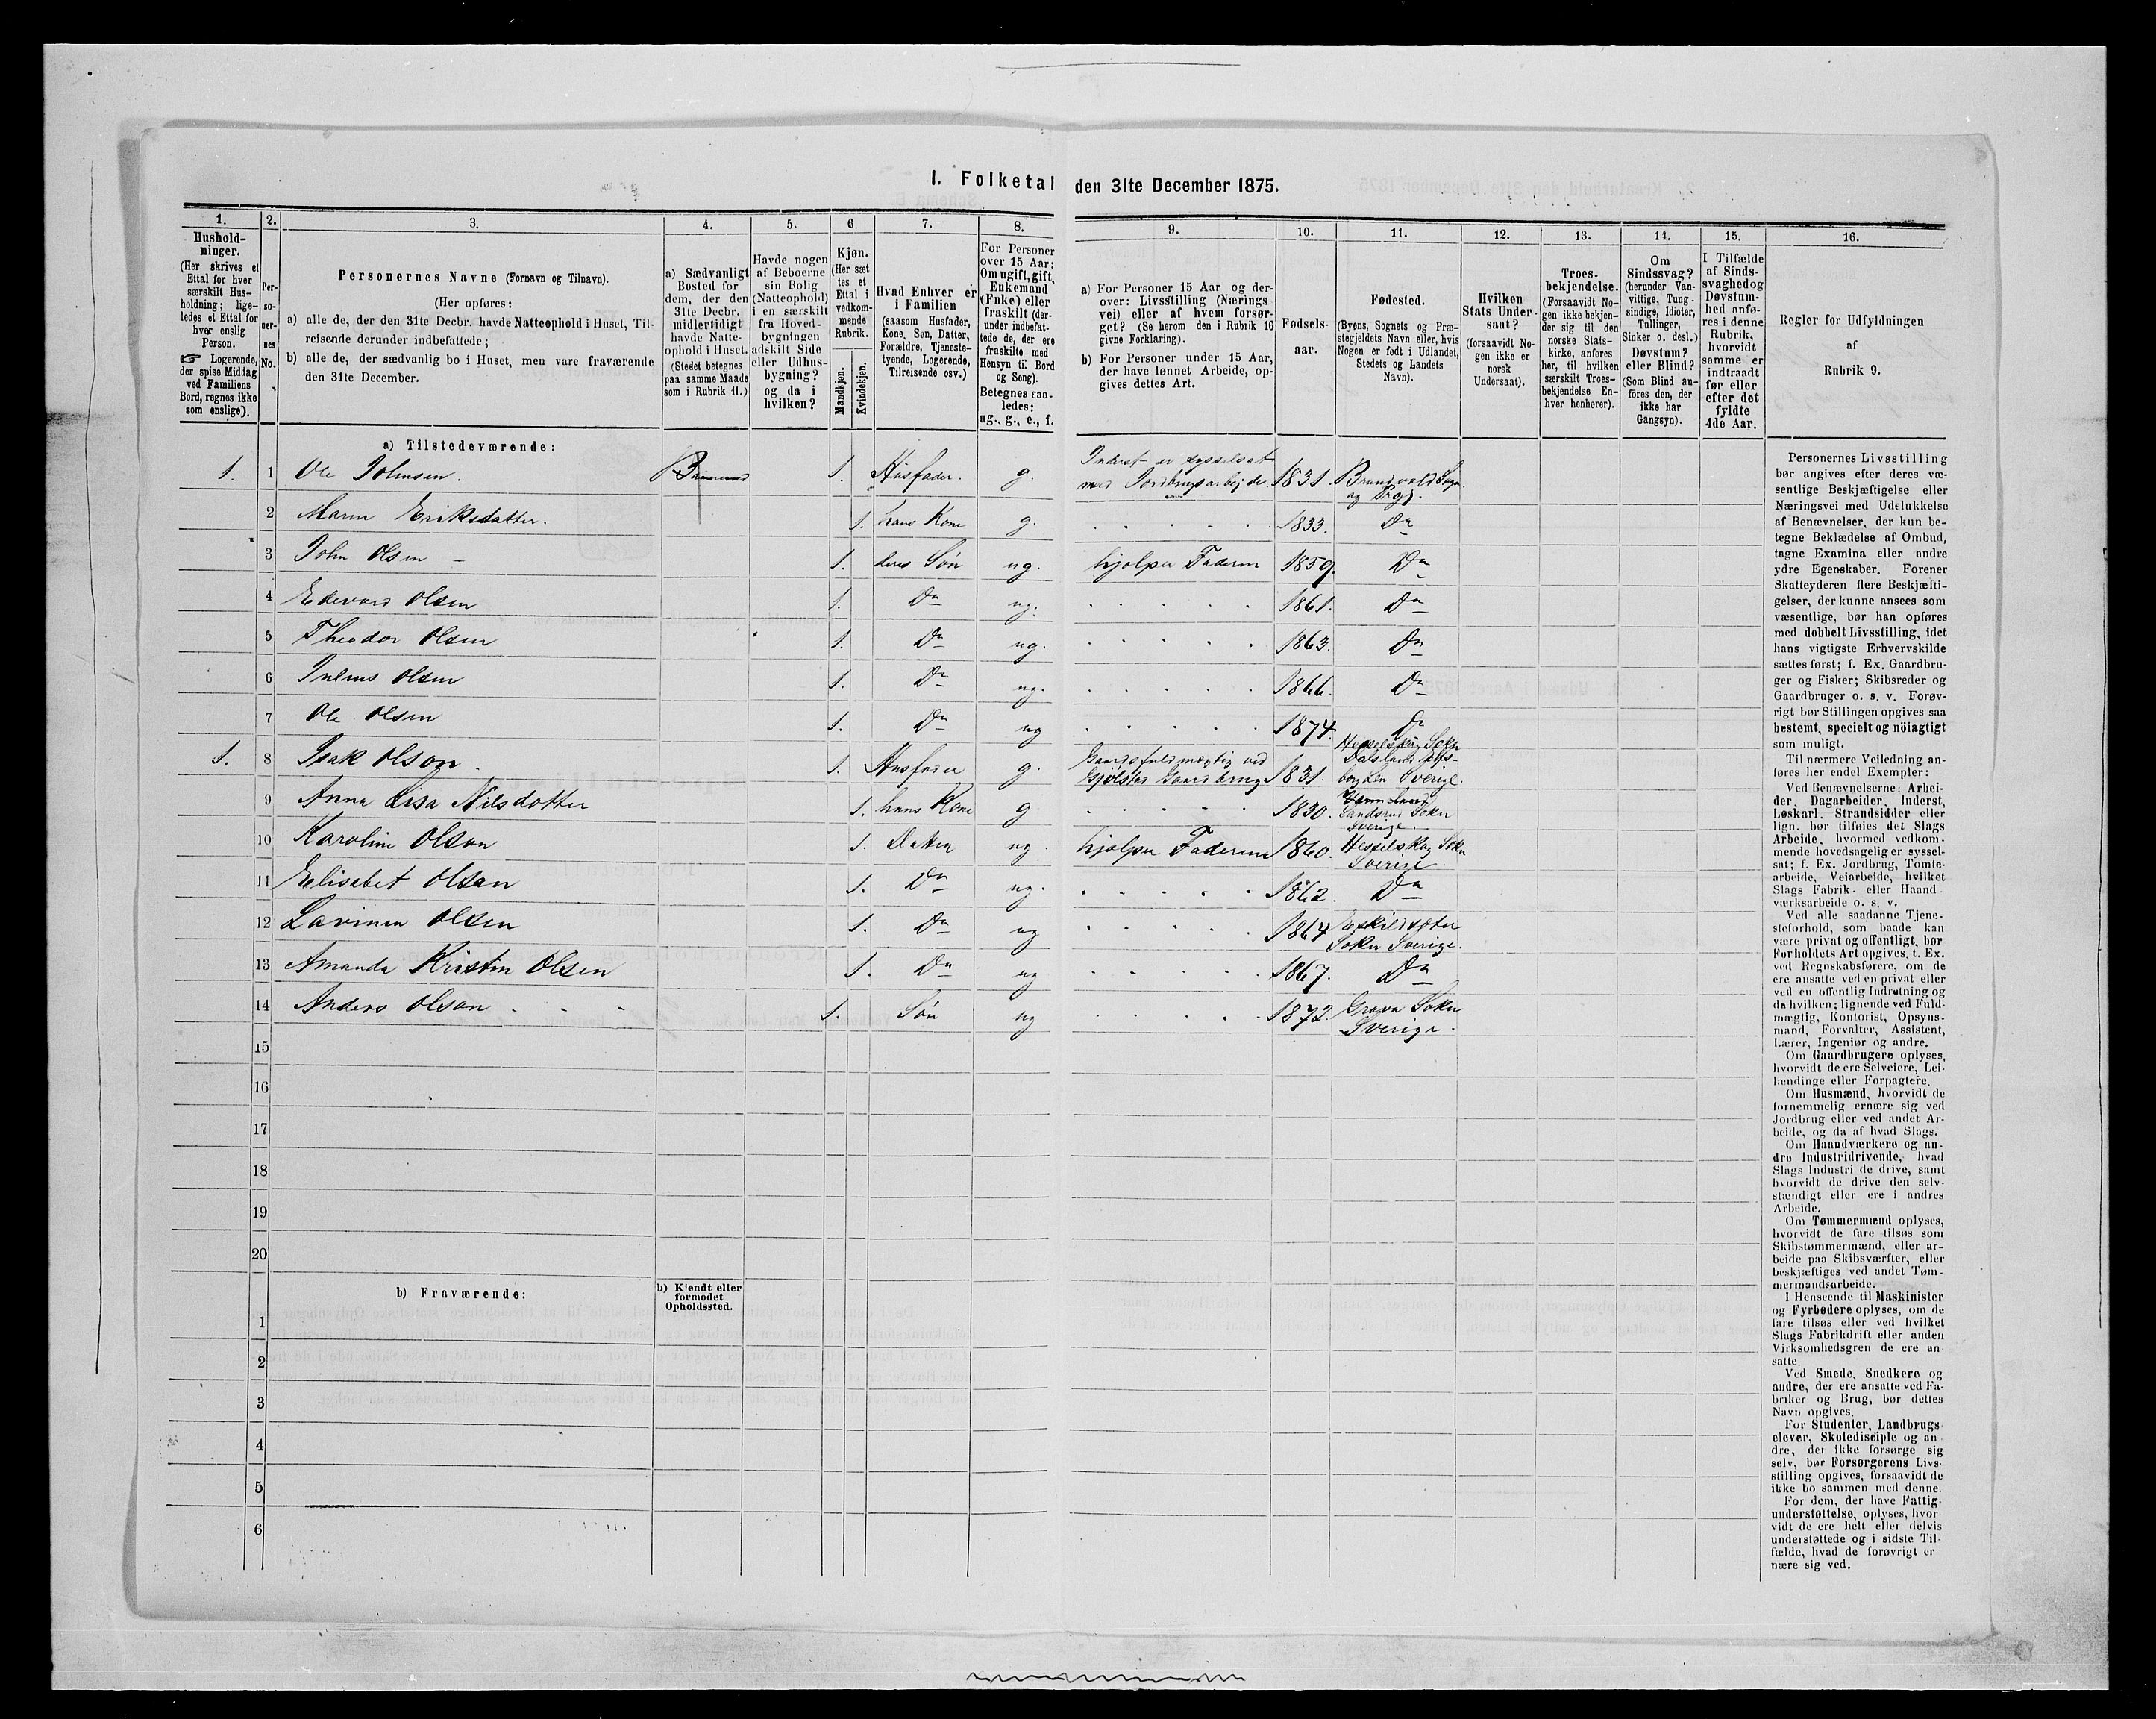 I. Folketal den 31te December 1875.
1. 2. 3. 4. 5. 6. 7. 8. 9. 10. 11. 12. 13. 14. 15. 16.
Hushold-
ninger.
(Her skrives et
Ettal for hver
særskilt Hus-
holdning; lige-
ledes et Ettal for
hver enslig
Person.
☞ Logerende,
der spise Middag
ved Familiens
Bord, regnes ikke
som enslige).
Per-
so-
ner-
nes
No.
Personernes Navne (Fornavn og Tilnavn).
(Her opføres:
a) alle de, der den 31te Decbr. havde Natteophold i Huset, Til-
reisende derunder indbefattede;
b) alle de, der sædvanlig bo i Huset, men vare fraværende
den 31te December.
a) Sædvanligt
Bosted for
dem, der den
31te Decbr.
midlertidigt
havde Natte-
ophold i Huset.
(Stedet betegnes
paa samme Maade
som i Rubrik 11.)
Havde nogen
af Beboerne
sin Bolig
(Natteophold)
i en særskilt
fra Hoved-
bygningen
adskilt Side
eller Udhus-
bygning?
og da i
hvilken?
Kjøn.
(Her sæt
tes et
Ettal i
vedkom-
mende
Rubrik.
Mandkjøn.
Kvindekjøn.
Hvad Enhver er
i Familien
(saasom Husfader,
Kone, Søn, Datter,
Forældre, Tjeneste-
tyende, Logerende,
Tilreisende osv.)
For Personer
over 15 Aar:
Om ugift, gift,
Enkemand
(Enke) eller
fraskilt (der-
under indbefat-
tede de, der ere
fraskilte med
Hensyn til Bord
og Seng).
Betegnes saa-
ledes:
ug., g., e., f.
a) For Personer 15 Aar og der-
over: Livsstilling (Nærings
vei) eller af hvem forsør-
get? (Se herom den i Rubrik 16
givne Forklaring).
b) For Personer under 15 Aar,
der have lønnet Arbeide, op-
gives dettes Art.
Fødsels-
aar.
Fødested.
(Byens, Sognets og Præ-
stegjeldets Navn eller, hvis
Nogen er født i Udlandet,
Stedets og Landets
Navn).
Hvilken
Stats Under-
saat?
(forsaavidt No-
gen ikke er
norsk
Undersaat).
Troes-
bekjendelse.
(Forsaavidt No-
gen ikke bekjen-
der sig til den
norske Stats-
kirke, anføres
her, til hvilken
særskilt Troes-
bekjendelse En-
hver henhører).
Om
Sindssvag?
(herunder Van-
vittige, Tung-
sindige, Idioter,
Tullinger,
Sinker o. desl.)
Døvstum?
eller Blind?
(Som Blind an-
føres den, der
ikke har
Gangsyn).
I Tilfælde
af Sinds-
svaghed og
Døvstum-
hed anfø-
res i denne
Rubrik,
hvorvidt
samme er
indtraadt
før eller
efter det
fyldte
4de Aar.
Regler for Udfyldningen
af
Rubrik 9.
a) Tilstedeværende:
1. 1 Ole Johnsen. 1. Husfader. g. Inderst er sysselsat
med Jordbrugsarbejde. 1831. Brandvold Sogn
og Prgj.
2 Maren Eriksdatter. 1. hans Kone g. 1833. Do
3 John Olsen 1. deres Søn ug. hjælper Faderen 1859. Do
4 Edevard Olsen 1. Do ug. 1861. Do
5 Theodor Olsen 1. Do ug. 1863. Do
6 Julius Olsen 1. Do ug. 1866. Do
7 Ole Olsen 1. Do ug 1874. Do
1. 8 Isak Olson. 1. Husfader g. Gaardsfuldmægtig ved
Gaardbrug 1831. Hesselskog Sokn
Dalsland Elfs-
borg Len Sverige.
9 Anna Lisa Nilsdotter 1. hans Kone g 1830. Sokn
Sverige.
10 Karolina Olson 1. Datter ug. hjælper Faderen 1860. Hesselskog Sokn
Sverige.
11 Elisabet Olsen 1. Do ug. 1862. Do
12 Lavinea Olsen 1. Do ug 1864 Eskilsæter
Sokn Sverige.
13 Amanda Kristin Olsen 1. Do ug 1867. Do
14 Anders Olson 1. Søn ug 1872. Grava Sokn
Sverige.
15
16
17
18
19
20
b) Fraværende:
b) Kjendt eller
formodet
Opholdssted.
1
2
3
4
5
6
Personernes Livsstilling
bør angives efter deres væ-
sentlige Beskjæftigelse eller
Næringsvei med Udelukkelse
af Benævnelser, der kun be-
tegne Beklædelse af Ombud,
tagne Examina eller andre
ydre Egenskaber. Forener
Skatteyderen flere Beskjæfti-
gelser, der kunne ansees som
væsentlige, bør han opføres
med dobbelt Livsstilling, idet
hans vigtigste Erhvervskilde
sættes først; f. Ex. Gaardbru-
ger og Fisker; Skibsreder og
Gaardbruger o. s. v. Forøv-
rigt bør Stillingen opgives saa
bestemt, specielt og nöiagtigt
som muligt.
Til nærmere Veiledning an-
føres her endel Exempler:
Ved Benævnelserne: Arbei-
der, Dagarbeider, Inderst,
Løskarl, Strandsidder eller
lign. bør tilføies det Slags
Arbeide, hvormed vedkom-
mende hovedsagelig er syssel-
sat; f. Ex. Jordbrug, Tomte-
arbeide, Veiarbeide, hvilket
Slags Fabrik- eller Haand-
værksarbeide o. s. v.
Ved alle saadanne Tjene-
steforhold, som baade kan
være privat og offentligt, bør
Forholdets Art opgives, t. Ex.
ved Regnskabsførere, om de
ere ansatte ved en privat eller
ved en offentlig Indretning og
da hvilken; lignende ved Fuld-
mægtig, Kontorist, Opsyns-
mand, Forvalter, Assistent,
Lærer, Ingeniør og andre.
Om Gaardbrugere oplyses,
hvorvidt de ere Selveiere, Lei-
lændinge eller Forpagtere.
Om Husmænd, hvorvidt de
fornemmelig ernære sig ved
Jordbrug eller ved andet Ar-
beide, og da af hvad Slags.
Om Haandværkere og an-
dre Industridrivende, hvad
Slags Industri de drive, samt
hvorvidt de drive den selv-
stændigt eller ere i andres
Arbeide.
Om Tømmermænd oplyses,
hvorvidt de fare tilsøs som
Skibstømmermænd, eller ar-
beide paa Skibsværfter, eller
beskjæftiges ved andet Tøm-
mermandsarbeide.
I Henseende til Maskinister
og Fyrbødere oplyses, om de
fare tilsøs eller ved hvilket
Slags Fabrikdrift eller anden
Virksomhedsgren de ere an-
satte.
Ved Smede, Snedkere og
andre, der ere ansatte ved Fa-
briker og Brug, bør dettes
Navn opgives.
For Studenter, Landbrugs-
elever, Skoledisciple og an-
dre, der ikke forsørge sig
selv, bør Forsørgerens Livs-
stilling opgives, forsaavidt de
ikke bo sammen med denne.
For dem, der have Fattig-
understøttelse, oplyses, hvor-
vidt de ere helt eller delvis
understøttede og i sidste Til-
fælde, hvad de forøvrigt er-
nære sig ved.